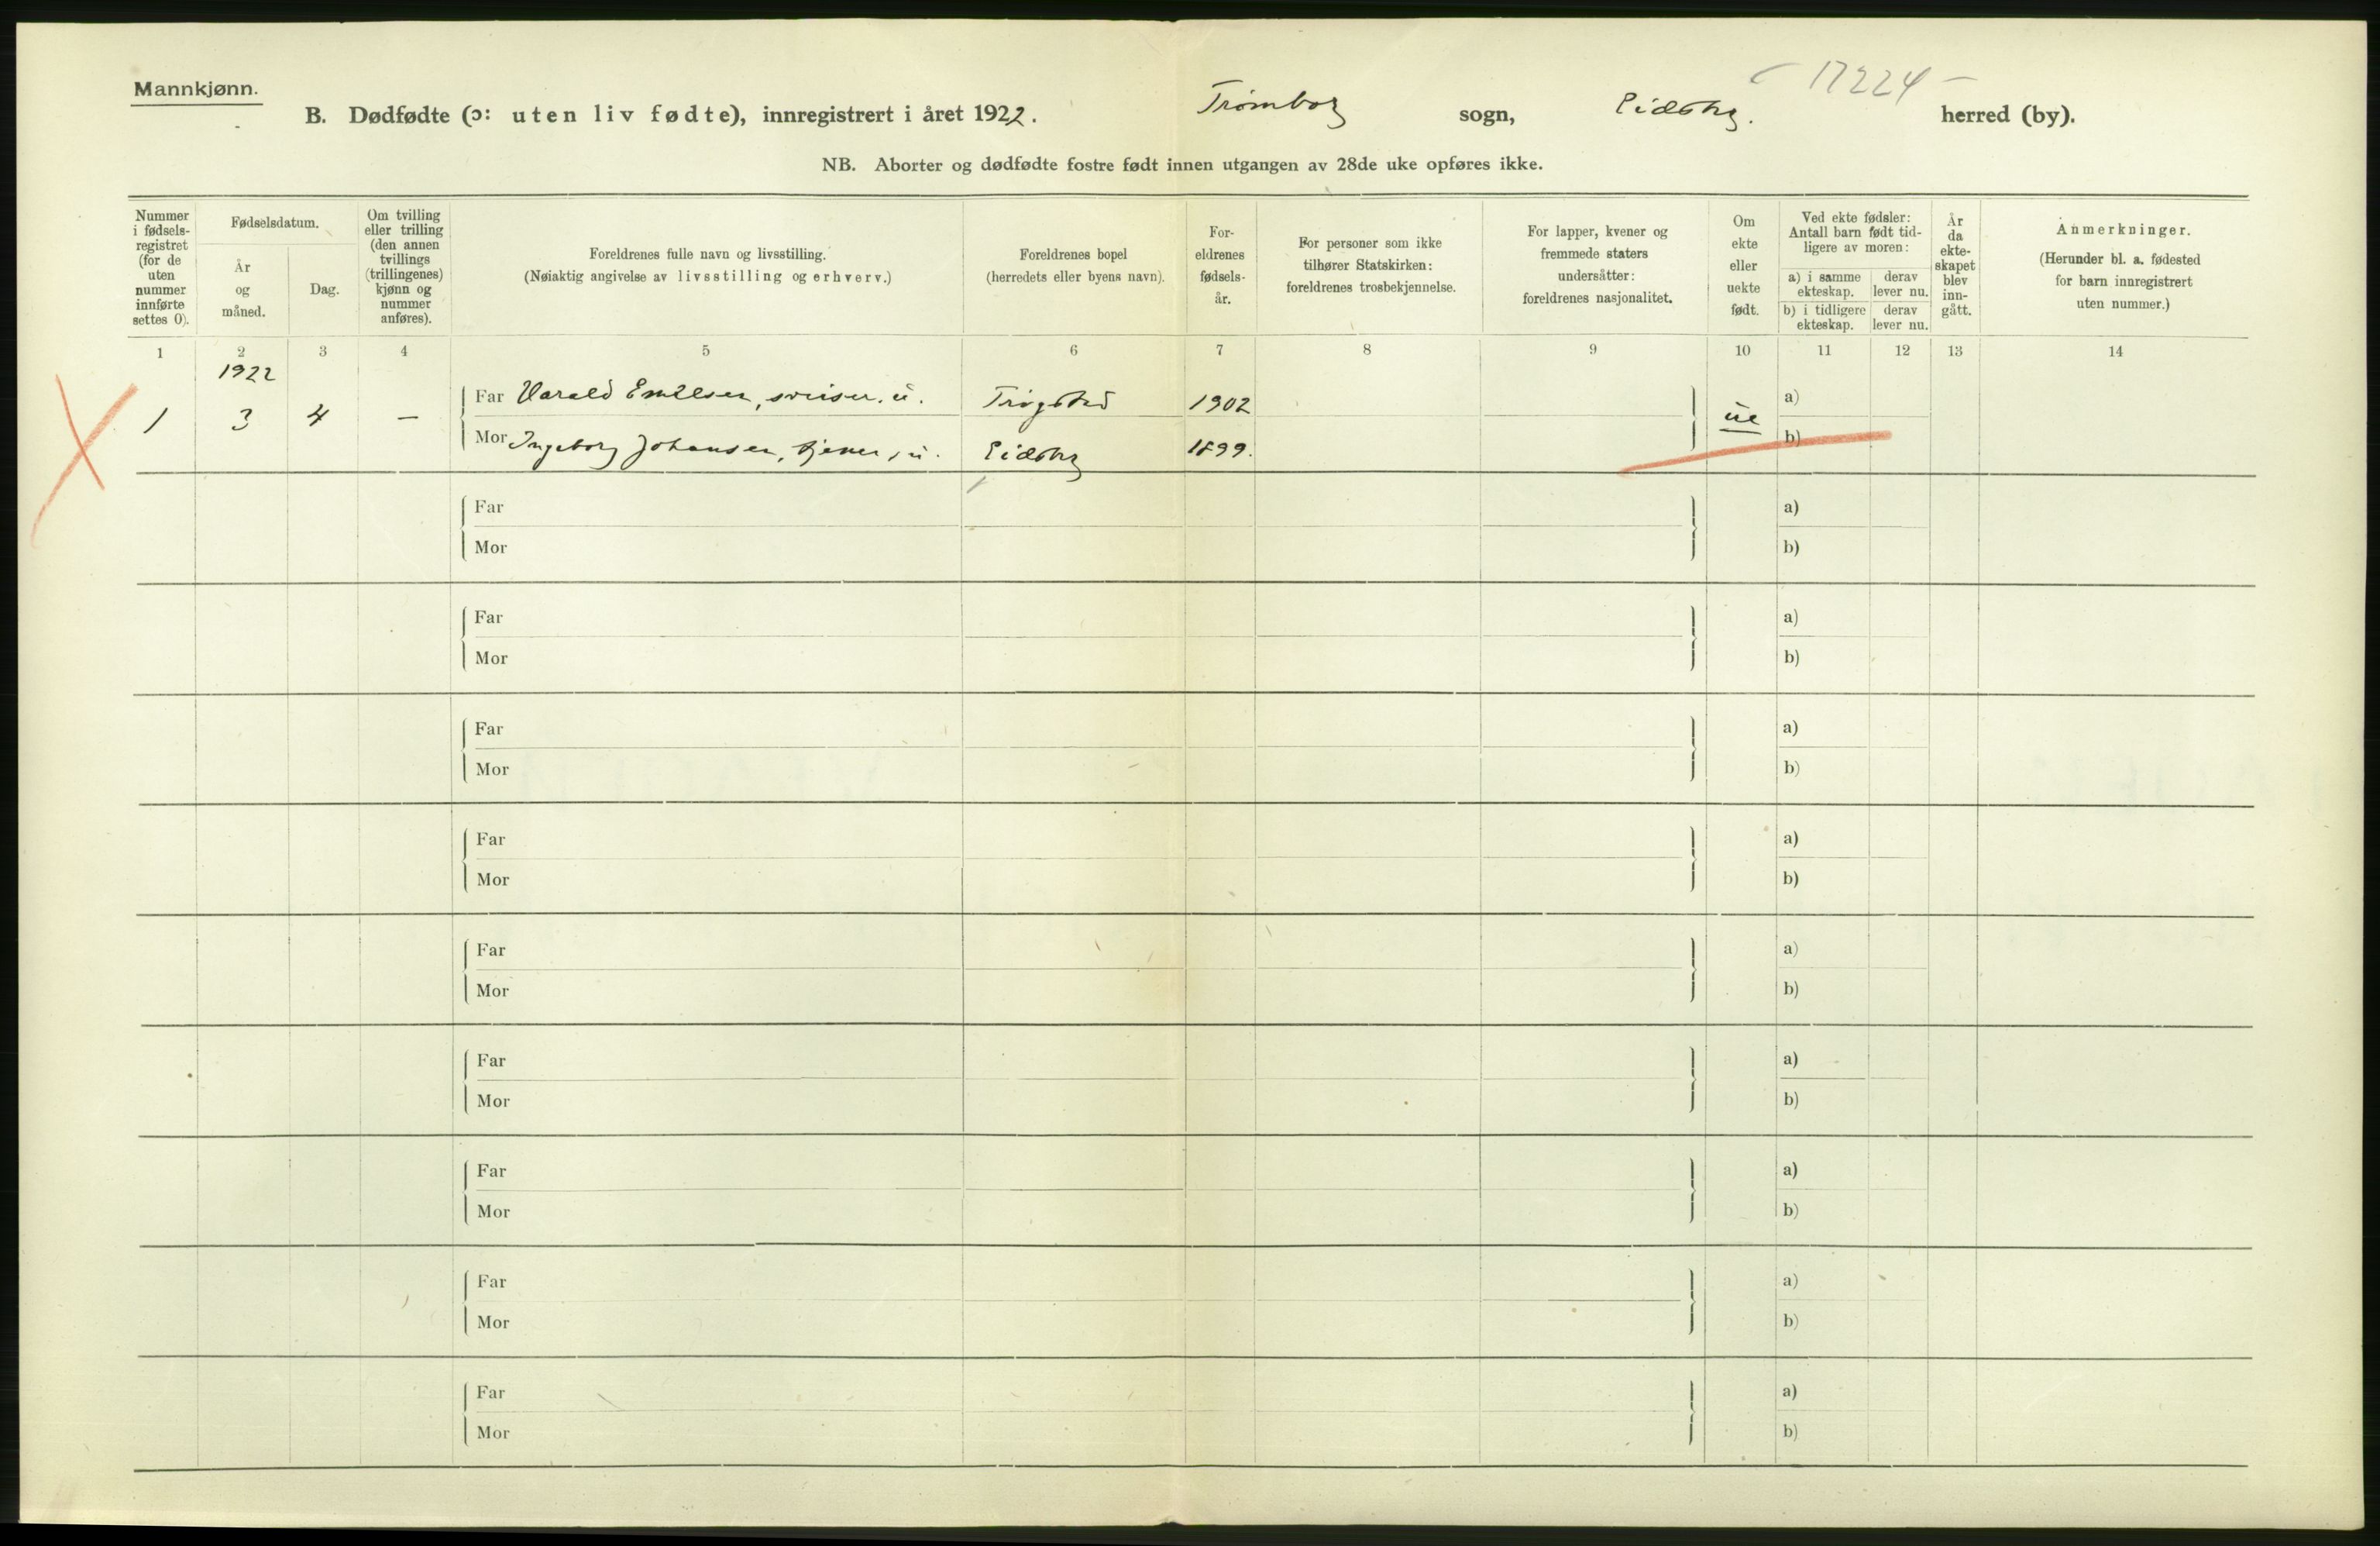 Mannkjønn.
- 17224 -
B. Dødfødte (ɔ: uten liv fødte), innregistrert i året 1922. Trømborg sogn, Eidsbg. herred (by).
NB. Aborter og dødfødte fostre født innen utgangen av 28de uke opføres ikke.
Nummer i fødsels-registret (for de uten nummer innførte settes 0).
Fødselsdatum.
År og måned.
Dag.
Om tvilling eller trilling (den annen tvillings (trillingenes) kjønn og nummer anføres).
Foreldrenes fulle navn og livsstilling.
(Nøiaktig angivelse av livsstilling og erhverv.)
Foreldrenes bopel
(herredets eller byens navn).
For-eldrenes fødsels-år.
For personer som ikke tilhører Statskirken: foreldrenes trosbekjennelse.
For lapper, kvener og fremmede staters undersåtter: foreldrenes nasjonalitet.
Om ekte eller uekte født.
Ved ekte fødsler: Antall barn født tid-ligere av moren:
a) i samme ekteskap. derav lever nu.
b) i tidligere ekteskap. derav lever nu.
År da ekte-skapet blev inn-gått.
Anmerkninger.
(Herunder bl. a. fødested for barn innregistrert uten nummer.)
1 2 3 4 5 6 7 8 9 10 11 12 13 14
1922
Far Harald Emilsen, sveiser. ü. Trøgstad 1902 a)
1 3 4 — ue
Mor Ingeborg Johansen, tjener, ü. Eidsbg 1899. b)
Far a)
Mor b)
Far a)
Mor b)
Far a)
Mor b)
Far a)
Mor b)
Far a)
Mor b)
Far a)
Mor b)
Far a)
Mor b)
Far a)
Mor b)
Far a)
Mor b)